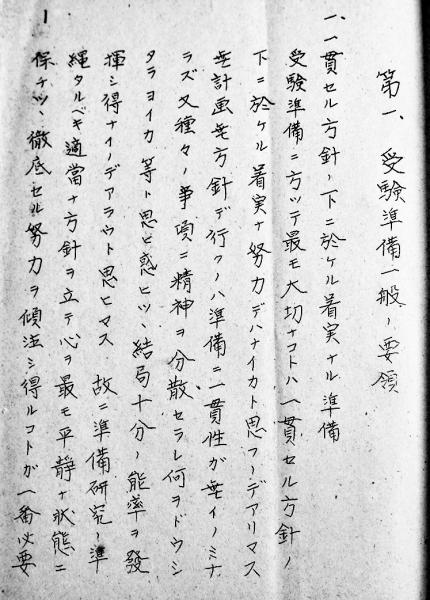 第一、受験準備一般ノ要領
一、一貫セル方針ノ下ニ於ケル着実ナル準備
受験準備ニ方ツテ最モ大切ナコトハ一貫セル方針ノ
下ニ於ケル着実ナ努力デハナイカト思フノデアリマス
無計画無方針デ行フノハ準備ニ一貫性ガ無イノミナ
ラズ又種々ノ事項ニ精神ヲ分散セラレ何ヲドウシ
タラヨイカ等ト思ヒ惑ヒツヽ結局十分ノ能率ヲ發
揮シ得ナイノデアラウト思ヒマス 故ニ準備研究ノ準
縄タルベキ適當ナ方針ヲ立テ心ヲ最モ平静ナ状態ニ
保チツヽ徹底セル努力ヲ傾注シ得ルコトガ一番必要
1